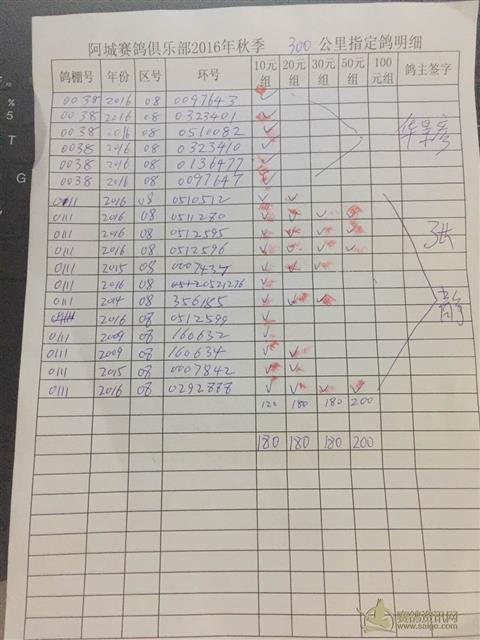 阿城赛鸽俱乐部2016年秋季 300 公里指定鸽明细
鸽棚号 年份 区号 环号 10元组 20元组 30元组 50元组 100元组 鸽主签字
0038 2016 08 0097643 ✓
0038 2016 08 0323401 ✓
0038 2016 08 0510082 ✓
0038 2016 08 0323410 ✓
0038 2016 08 0136477 ✓
0038 2016 08 0097647 ✓
0111 2016 08 0510512 ✓ ✓
0111 2016 08 0511270 ✓ ✓ ✓ ✓
0111 2016 08 0512595 ✓ ✓ ✓ ✓
0111 2016 08 0512596 ✓ ✓ ✓ ✓
0111 2015 08 0007437 ✓ ✓ ✓
0111 2016 08 0521276 ✓
0111 2014 08 356185 ✓ ✓ ✓
2016 08 0512599 ✓
0111 2009 08 160632 ✓
0111 2009 08 160634 ✓ ✓
0111 2015 08 0007842 ✓ ✓
0111 2016 08 0292888 ✓ ✓ ✓ ✓
120 180 180 200
180 180 180 200
赛鸽资讯网
www.saige.com